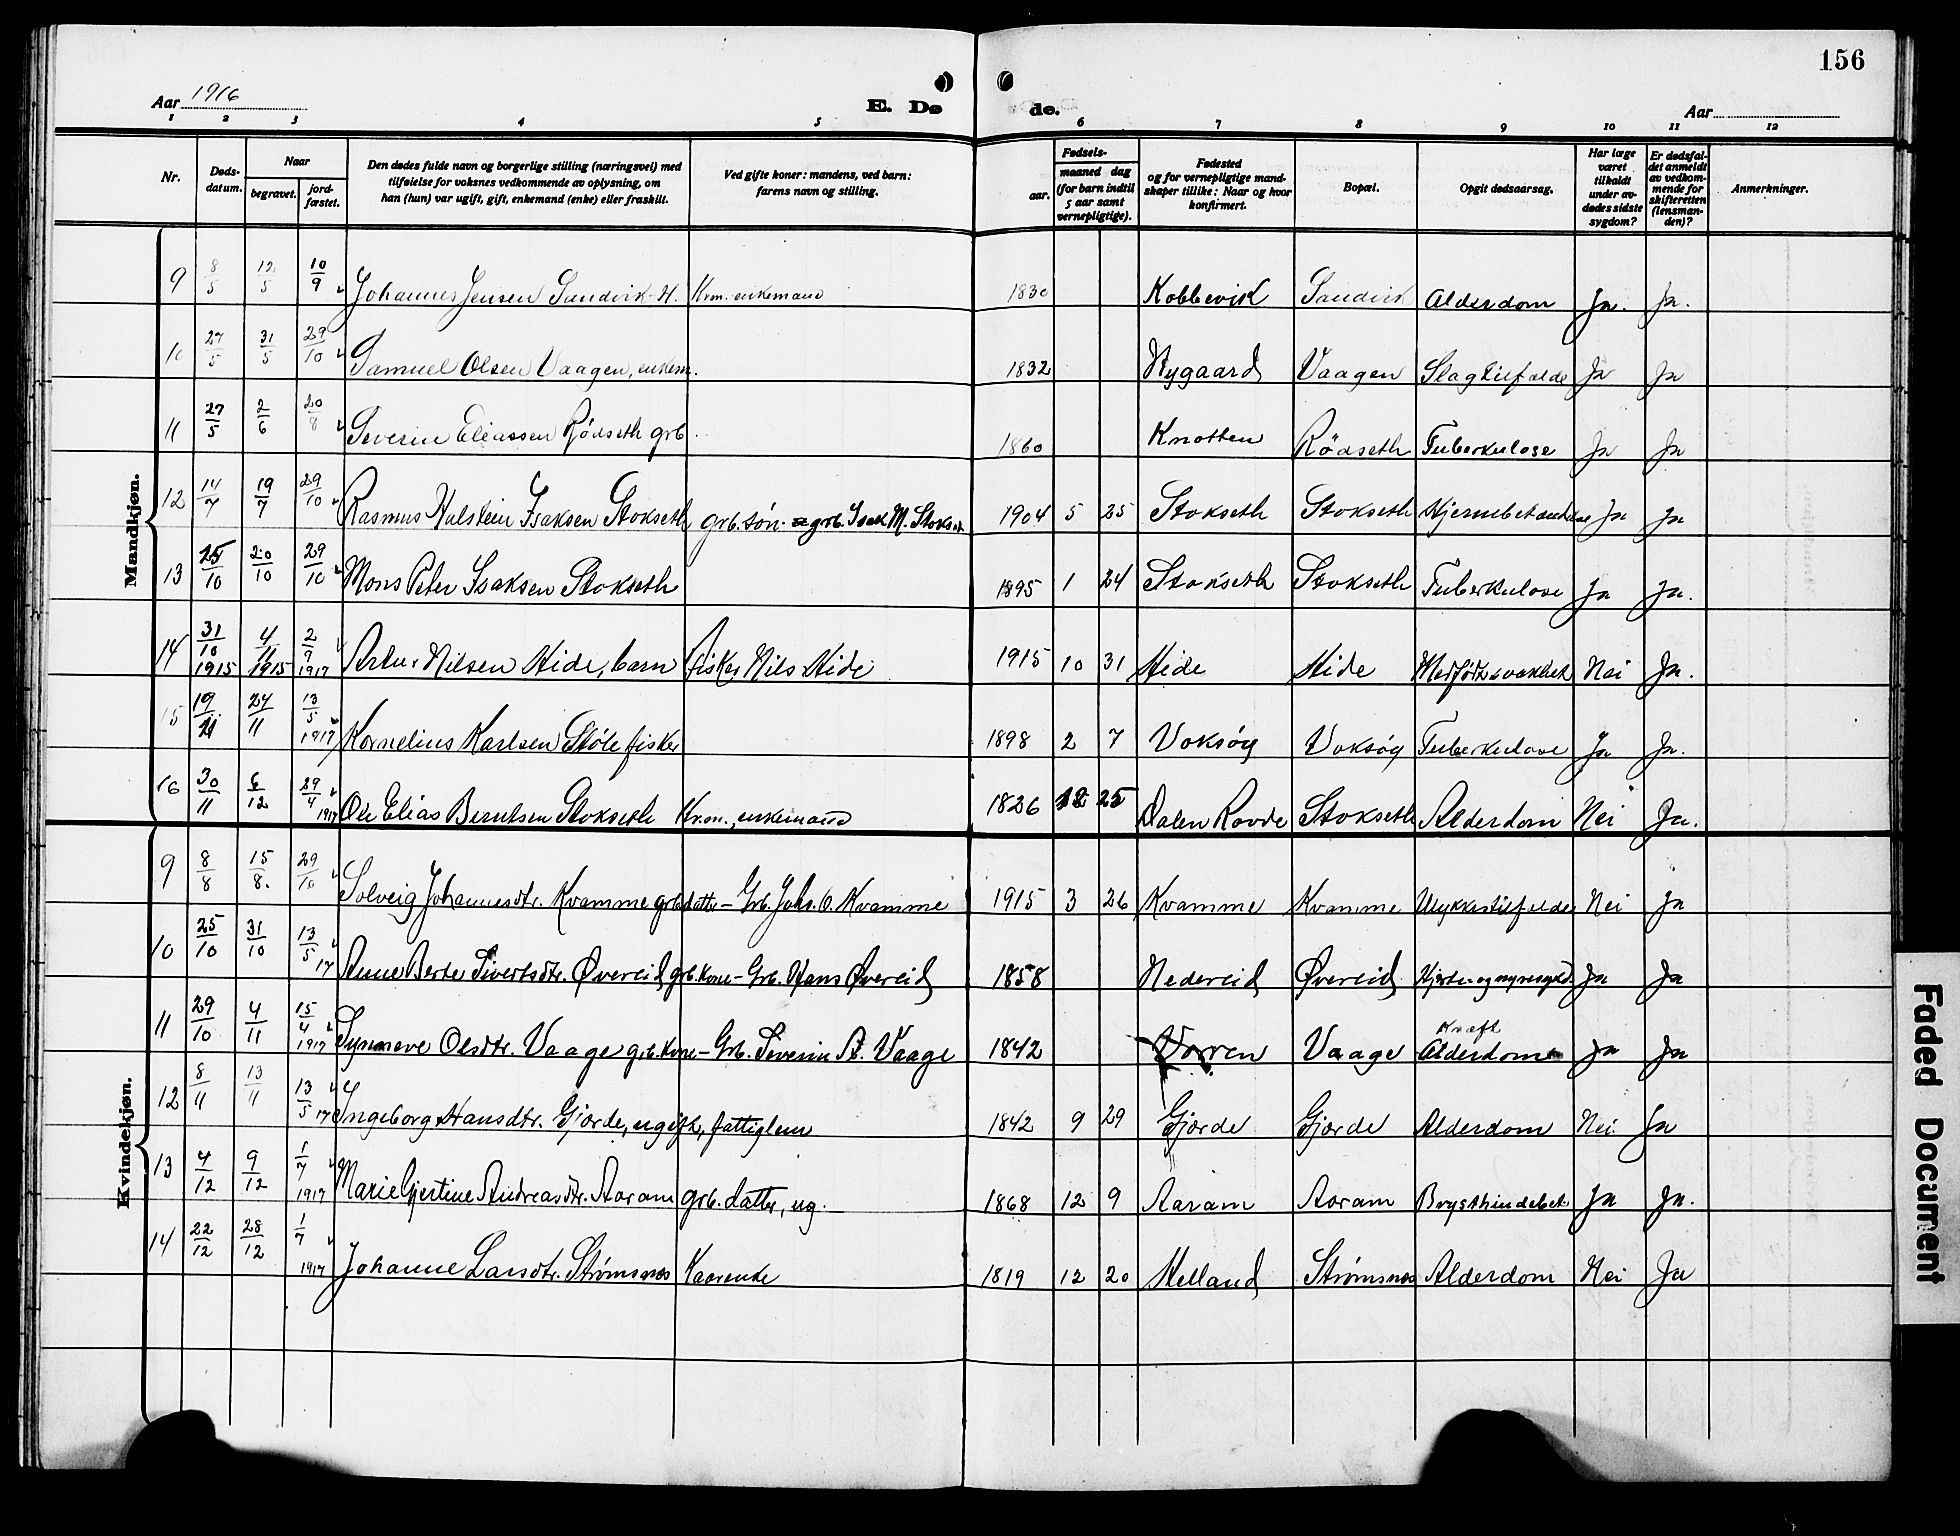 156
Aar 1916
E. Dø
de.
Aar
1 2 3 4 5 6 7 8 9 10 11 12
Nr.
Døds-datum.
Naar
begravet.
jord-fæstet.
Den dødes fulde navn og borgerlige stilling (næringsvei) med tilføielse for voksnes vedkommende av oplysning, om han (hun) var ugift, gift, enkemand (enke) eller fraskilt.
Ved gifte koner: mandens, ved barn: farens navn og stilling.
Fødsels-
aar.
maaned dag (for barn indtil 5 aar samt vernepligtige).
Fødested og for vernepligtige mandskaper tillike: Naar og hvor konfirmert.
Bopæl.
Opgit dødsaarsag.
Har læge været tilkaldt under avdødes sidste sygdom?
Er dødsfaldet anmeldt av vedkommende for skifteretten (lensmanden)?
Anmerkninger.
Mandkjøn.
9 8/5 12/5 10/9 Johannes Jensen Sandvik-H. Krm. enkemand 1830 Kobbevik Sandvik Alderdom Ja. Ja.
10 27/5 31/5 29/10 Samuel Olsen Vaagen, enkem. 1832 Nygaard Vaagen Slagtilfælde Ja Ja
11 27/5 2/6 20/8 Severin Eliassen Rødseth grb. 1860 Knotten Rødseth Tuberkulose Ja Ja
12 14/7 19/7 29/10 Rasmus Halstein Isaksen Stokseth grb. søn - grb. Isak M. Stokset 1904 5 25 Stokseth Stokseth Hjernebetændelse Ja Ja
13 15/10 20/10 29/10 Mons Peter Isaksen Stokseth 1895 1 24 Stokseth Stokseth Tuberkulose Ja Ja.
14 31/10 1915 4/11 1915 2/9 1917 Artur Nilsen Hide, barn fisker Nils Hide 1915 10 31 Hide Hide Medfødt svakhet Nei Ja.
15 19/11 24/11 13/5 1917 Kornelius Karlsen Støle fisker 1898 2 7 Voksøy Voksøy Tuberkulose Ja Ja.
16 30/11 6/12 29/4 1917 Ole Elias Berntsen Stokseth Krm., enkemand 1826 12 25 Dalen Rovde Stokseth Alderdom Nei Ja.
Kvindekjøn.
9 8/8 15/8. 29/10 Solveig Johannesdtr. Kvamme grb datter - Grb. Johs. O. Kvamme 1915 3 26 Kvamme Kvamme Ulykkestilfælde Nei Ja
10 25/10 31/10 13/5 17 Anne Berte Sivertsdtr. Øvereid grb. kone - Grb. Hans Øvereid 1858 Nedereid Øvereid Hjerte- og nyresygd. Ja Ja
11 29/10 4/11 15/4 1917 Synneve Olsdtr. Vaage grb. kone - Grb. Severin A. Vaage 1842 Vorren Vaage Kræft Alderdom Ja Ja
12 8/11 13/11 13/5 17 Ingeborg Hansdtr. Gjørde, ugift, fattiglem 1842 9 29 Gjørde Gjørde Alderdom Nei Ja
13 4/12 9/12 1/7 1917 Marie Gjertine Andreasdtr. Aaram grb. datter, ug. 1868 12 9 Aaram Aaram Brysthindebet. Ja Ja.
14 22/12 28/12 1/7 1917 Johanne Larsdtr. Strømsnes Kaarenke 1819 12 20 Helland Strømsnes Alderdom Nei Ja
Faded Document